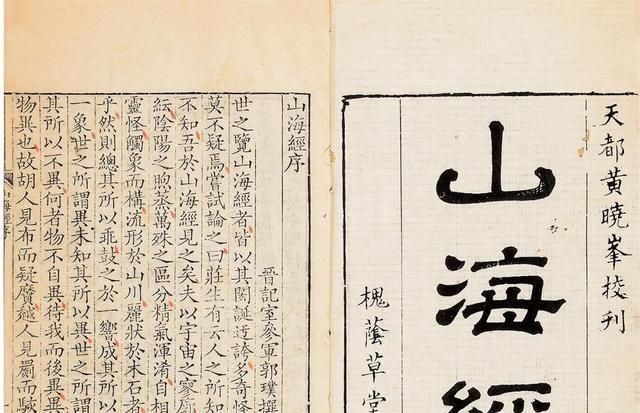 天都黃曉峯校刊
山海經
槐蔭草堂
山海經序
晉記室參軍郭璞撰
世之覽山海經者皆以其閎誕迂誇多奇怪
莫不疑焉嘗試論之曰莊生有云人之所知
不知吾於山海經見之矣夫以宇宙之寥廓
紜陰陽之煦蒸萬殊之區分精氣渾淆自相
靈怪觸象而構流形於山川麗狀於木石者
乎然則總其所以乖鼓之於一響成其所以
一象世之所謂異未知其所以異世之所謂
其所以不異何者物不自異待我而後異異
物異也故胡人見布而疑黂越人見罽而駭
山海經序